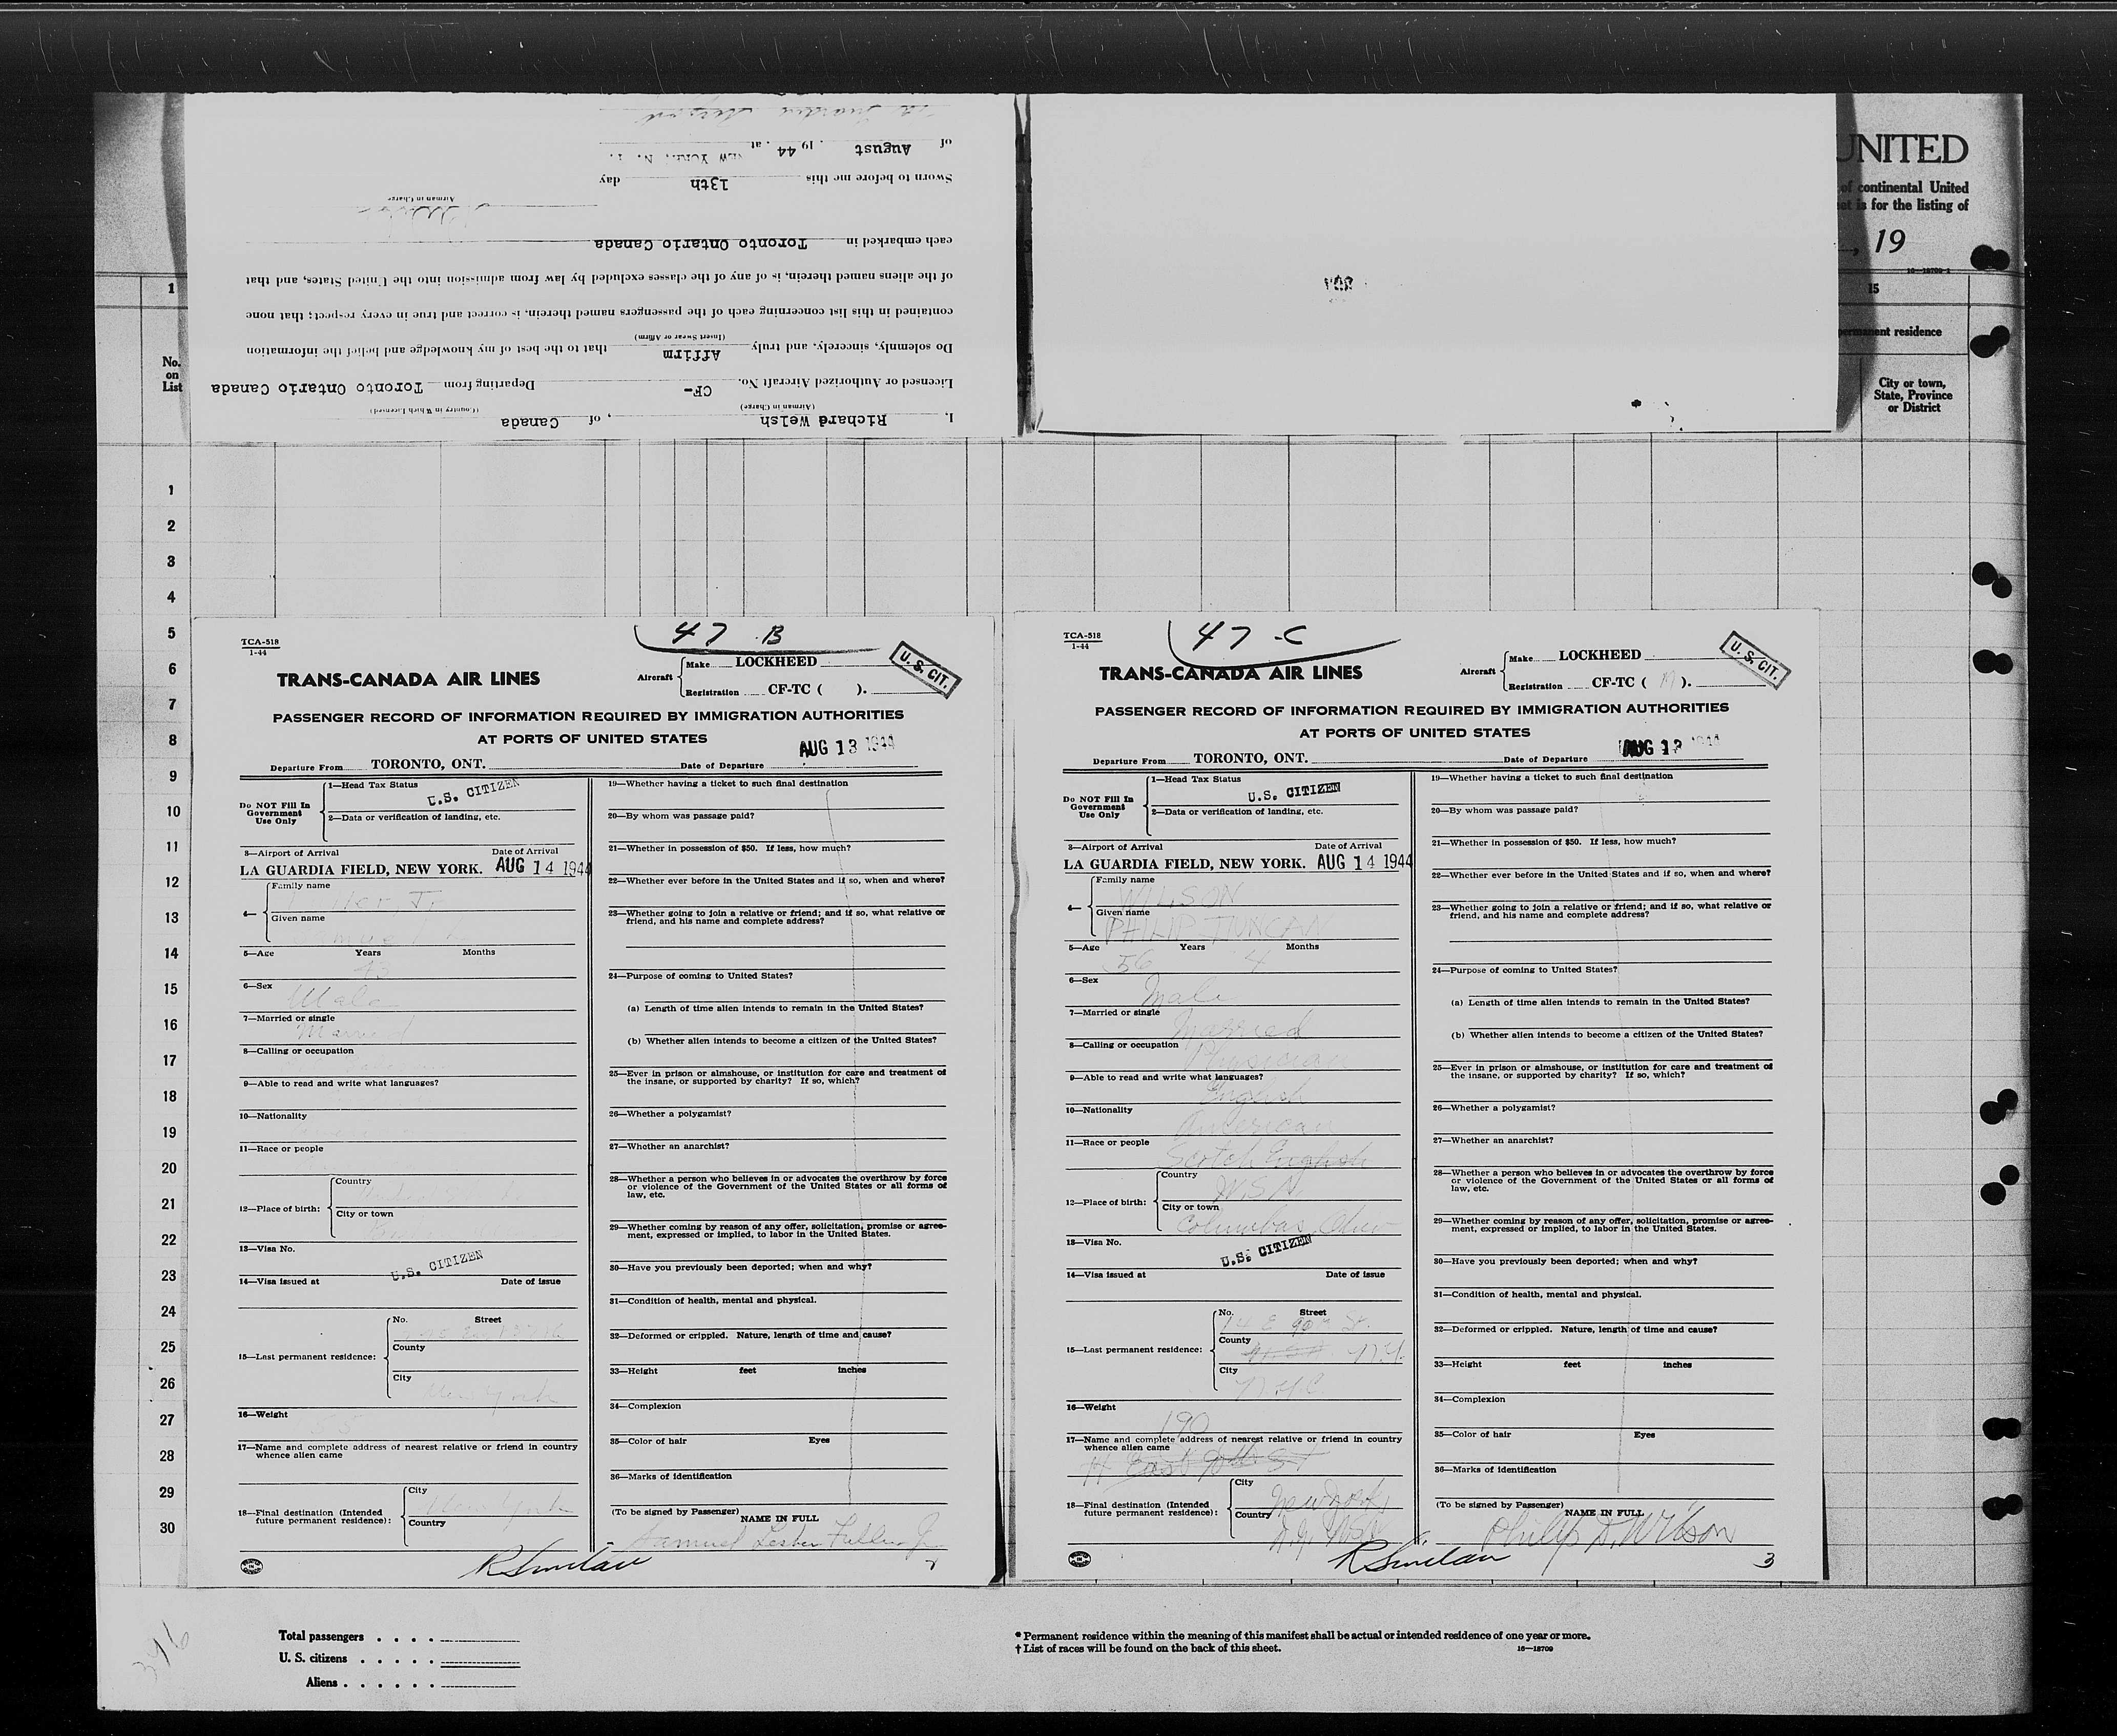 UNITED
of continental United
is for the listing of
, 19
16—18709-1
1
15
permanent residence
No.
on
List
City or town,
State, Province
or District
I, Richard Welsh, of Canada
(Airman in Charge) (Country in Which Licensed)
Licensed or Authorized Aircraft No. CF- Departing from Toronto Ontario Canada
Do solemnly, sincerely, and truly Affirm that to the best of my knowledge and belief the information
(Insert Swear or Affirm)
contained in this list concerning each of the passengers named therein, is correct and true in every respect; that none
of the aliens named therein, is of any of the classes excluded by law from admission into the United States, and that
each embarked in Toronto Ontario Canada
Airman in Charge
Sworn to before me this 13th day
of August, 19 44, at NEW YORK, N. Y.
1
2
3
4
5
6
7
8
9
10
11
12
13
14
15
16
17
18
19
20
21
22
23
24
25
26
27
28
29
30
47 B
TCA-518
1-44
TRANS-CANADA AIR LINES
Aircraft
Make LOCKHEED
Registration CF-TC ( ).
U. S. CIT.
PASSENGER RECORD OF INFORMATION REQUIRED BY IMMIGRATION AUTHORITIES
AT PORTS OF UNITED STATES
AUG 13 1944
Departure From TORONTO, ONT. Date of Departure
Do NOT Fill In
Government
Use Only
1—Head Tax Status
U.S. CITIZEN
2—Data or verification of landing, etc.
3—Airport of Arrival Date of Arrival
LA GUARDIA FIELD, NEW YORK. AUG 14 1944
4—
Family name
Jr.
Given name
5—Age Years Months
43
6—Sex
Male
7—Married or single
Married
8—Calling or occupation
9—Able to read and write what languages?
10—Nationality
11—Race or people
12—Place of birth:
Country
City or town
13—Visa No.
U.S. CITIZEN
14—Visa issued at Date of issue
15—Last permanent residence:
No. Street
County
City
New York
16—Weight
17—Name and complete address of nearest relative or friend in country
whence alien came
18—Final destination (Intended
future permanent residence):
City
New York
Country
R Sinclair
19—Whether having a ticket to such final destination
20—By whom was passage paid?
21—Whether in possession of $50. If less, how much?
22—Whether ever before in the United States and if so, when and where?
23—Whether going to join a relative or friend; and if so, what relative or
friend, and his name and complete address?
24—Purpose of coming to United States?
(a) Length of time alien intends to remain in the United States?
(b) Whether alien intends to become a citizen of the United States?
25—Ever in prison or almshouse, or institution for care and treatment of
the insane, or supported by charity? If so, which?
26—Whether a polygamist?
27—Whether an anarchist?
28—Whether a person who believes in or advocates the overthrow by force
or violence of the Government of the United States or all forms of
law, etc.
29—Whether coming by reason of any offer, solicitation, promise or agree-
ment, expressed or implied, to labor in the United States.
30—Have you previously been deported; when and why?
31—Condition of health, mental and physical.
32—Deformed or crippled. Nature, length of time and cause?
33—Height feet inches
34—Complexion
35—Color of hair Eyes
36—Marks of identification
(To be signed by Passenger)
NAME IN FULL
Samuel Lester Fuller Jr
2
47 -C
TCA-518
1-44
TRANS-CANADA AIR LINES
Aircraft
Make LOCKHEED
Registration CF-TC ( M ).
U. S. CIT.
PASSENGER RECORD OF INFORMATION REQUIRED BY IMMIGRATION AUTHORITIES
AT PORTS OF UNITED STATES
AUG 13 1944
Departure From TORONTO, ONT. Date of Departure
Do NOT Fill In
Government
Use Only
1—Head Tax Status
U.S. CITIZEN
2—Data or verification of landing, etc.
3—Airport of Arrival Date of Arrival
LA GUARDIA FIELD, NEW YORK. AUG 14 1944
4—
Family name
WILSON
Given name
PHILIP DUNCAN
5—Age Years Months
56 4
6—Sex
Male
7—Married or single
Married
8—Calling or occupation
Physician
9—Able to read and write what languages?
English
10—Nationality
American
11—Race or people
Scotch English
12—Place of birth:
Country
U.S.A.
City or town
Columbus, Ohio
13—Visa No.
U.S. CITIZEN
14—Visa issued at Date of issue
15—Last permanent residence:
No. Street
14 E 90th St.
County
N.Y.
City
N.Y.C.
16—Weight
190
17—Name and complete address of nearest relative or friend in country
whence alien came
14 East 90th St
18—Final destination (Intended
future permanent residence):
City
New York,
Country
N.Y. USA
R Sinclair
19—Whether having a ticket to such final destination
20—By whom was passage paid?
21—Whether in possession of $50. If less, how much?
22—Whether ever before in the United States and if so, when and where?
23—Whether going to join a relative or friend; and if so, what relative or
friend, and his name and complete address?
24—Purpose of coming to United States?
(a) Length of time alien intends to remain in the United States?
(b) Whether alien intends to become a citizen of the United States?
25—Ever in prison or almshouse, or institution for care and treatment of
the insane, or supported by charity? If so, which?
26—Whether a polygamist?
27—Whether an anarchist?
28—Whether a person who believes in or advocates the overthrow by force
or violence of the Government of the United States or all forms of
law, etc.
29—Whether coming by reason of any offer, solicitation, promise or agree-
ment, expressed or implied, to labor in the United States.
30—Have you previously been deported; when and why?
31—Condition of health, mental and physical.
32—Deformed or crippled. Nature, length of time and cause?
33—Height feet inches
34—Complexion
35—Color of hair Eyes
36—Marks of identification
(To be signed by Passenger)
NAME IN FULL
Philip D. Wilson
3
346
Total passengers
U. S. citizens
Aliens
* Permanent residence within the meaning of this manifest shall be actual or intended residence of one year or more.
† List of races will be found on the back of this sheet.
16—18709